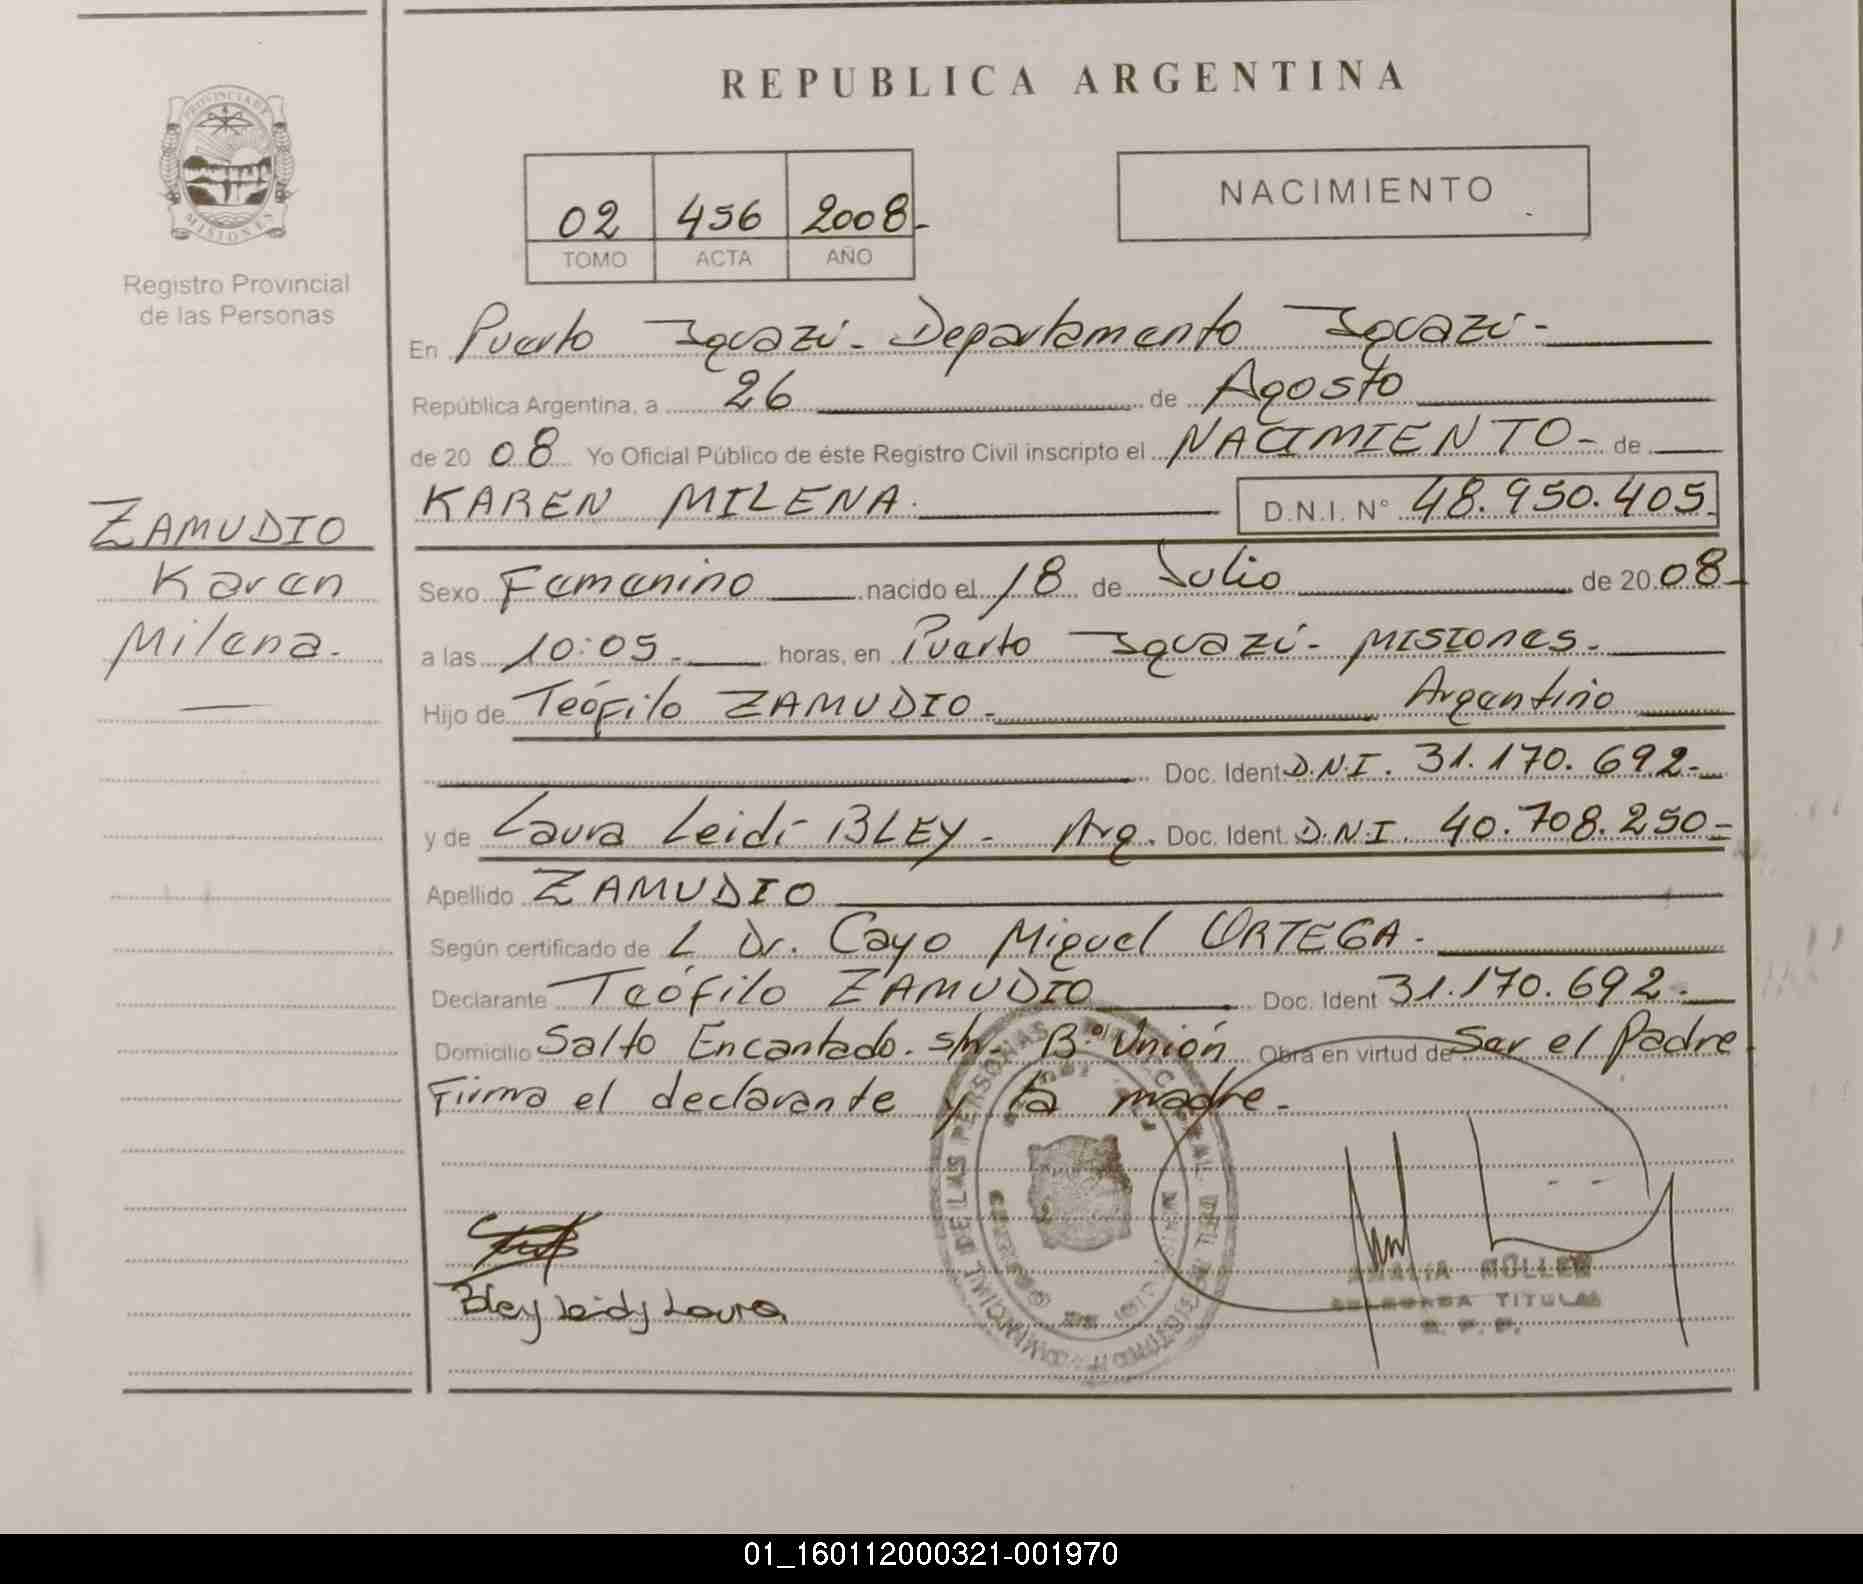 REPUBLICA ARGENTINA
PROVINCIA DE MISIONES
Registro Provincial
de las Personas
02 456 2008-
TOMO ACTA AÑO
NACIMIENTO
En Puerto Iguazú - Departamento Iguazú -
República Argentina, a 26 de Agosto
de 20 08 Yo Oficial Público de éste Registro Civil inscripto el NACIMIENTO - de
KAREN MILENA. D.N.I. N° 48.950.405-
ZAMUDIO
Karen
Milena.
Sexo Femenino nacido el 18 de Julio de 20 08-
a las 10:05- horas, en Puerto Iguazú - MISIONES.
Hijo de Teófilo ZAMUDIO - Argentino
Doc. Ident D.N.I. 31.170.692-
y de Laura Leidi BLEY - Arg. Doc. Ident. D.N.I. 40.708.250-
Apellido ZAMUDIO
Según certificado de L Dr. Cayo Miguel ORTEGA -
Declarante Teófilo ZAMUDIO Doc. Ident 31.170.692-
Domicilio Salto Encantado. s/n. B° Unión Obra en virtud de Ser el Padre
Firma el declarante y la madre -
Bley Leidy Laura
AMALIA MÜLLER
DELEGADA TITULAR
R. P. P.
01_160112000321-001970